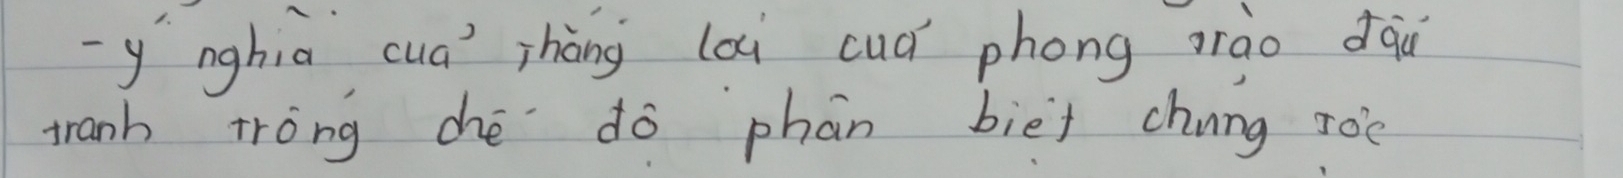 - ý nghĩa của thắng lợi của phong trào đấu
tranh trống chế độ phân biệt chủng tộc